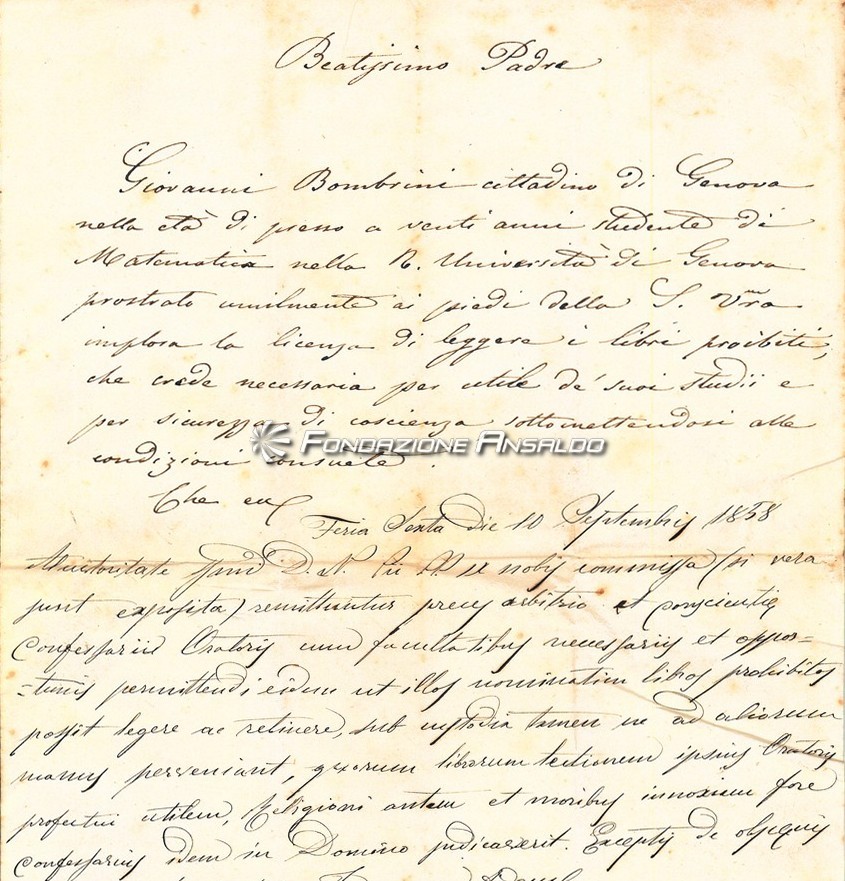 Beatissimo Padre
Giovanni Bombrini cittadino di Genova
nella età di presso a venti anni studente di
Matematica nella R. Università di Genova
prostrato umilmente ai piedi della S. Vra
implora la licenza di leggere i libri proibiti,
che crede necessaria per utile de' suoi studii e
per sicurezza di coscienza sottomettendosi alle
FONDAZIONE ANSALDO
condizioni consuete.
Che
Feria Sexta die 10 Septembris 1858
Auctoritate Smi D. N. Pii P. IX nobis commissa (si vera
sunt exposita) remittuntur preces arbitrio et conscientiæ
Confessarii Oratoris cum facultatibus necessariis et oppor=
=tunis permittendi eidem ut illos nominatim libros prohibitos
possit legere ac retinere, sub custodia tamen ne ad aliorum
manus perveniant, quorum librorum lectionem ipsius Oratoris
profectui utilem, Religioni autem et moribus innoxiam fore
Confessarius idem in Domino judicaverit. Exceptis de obscenis